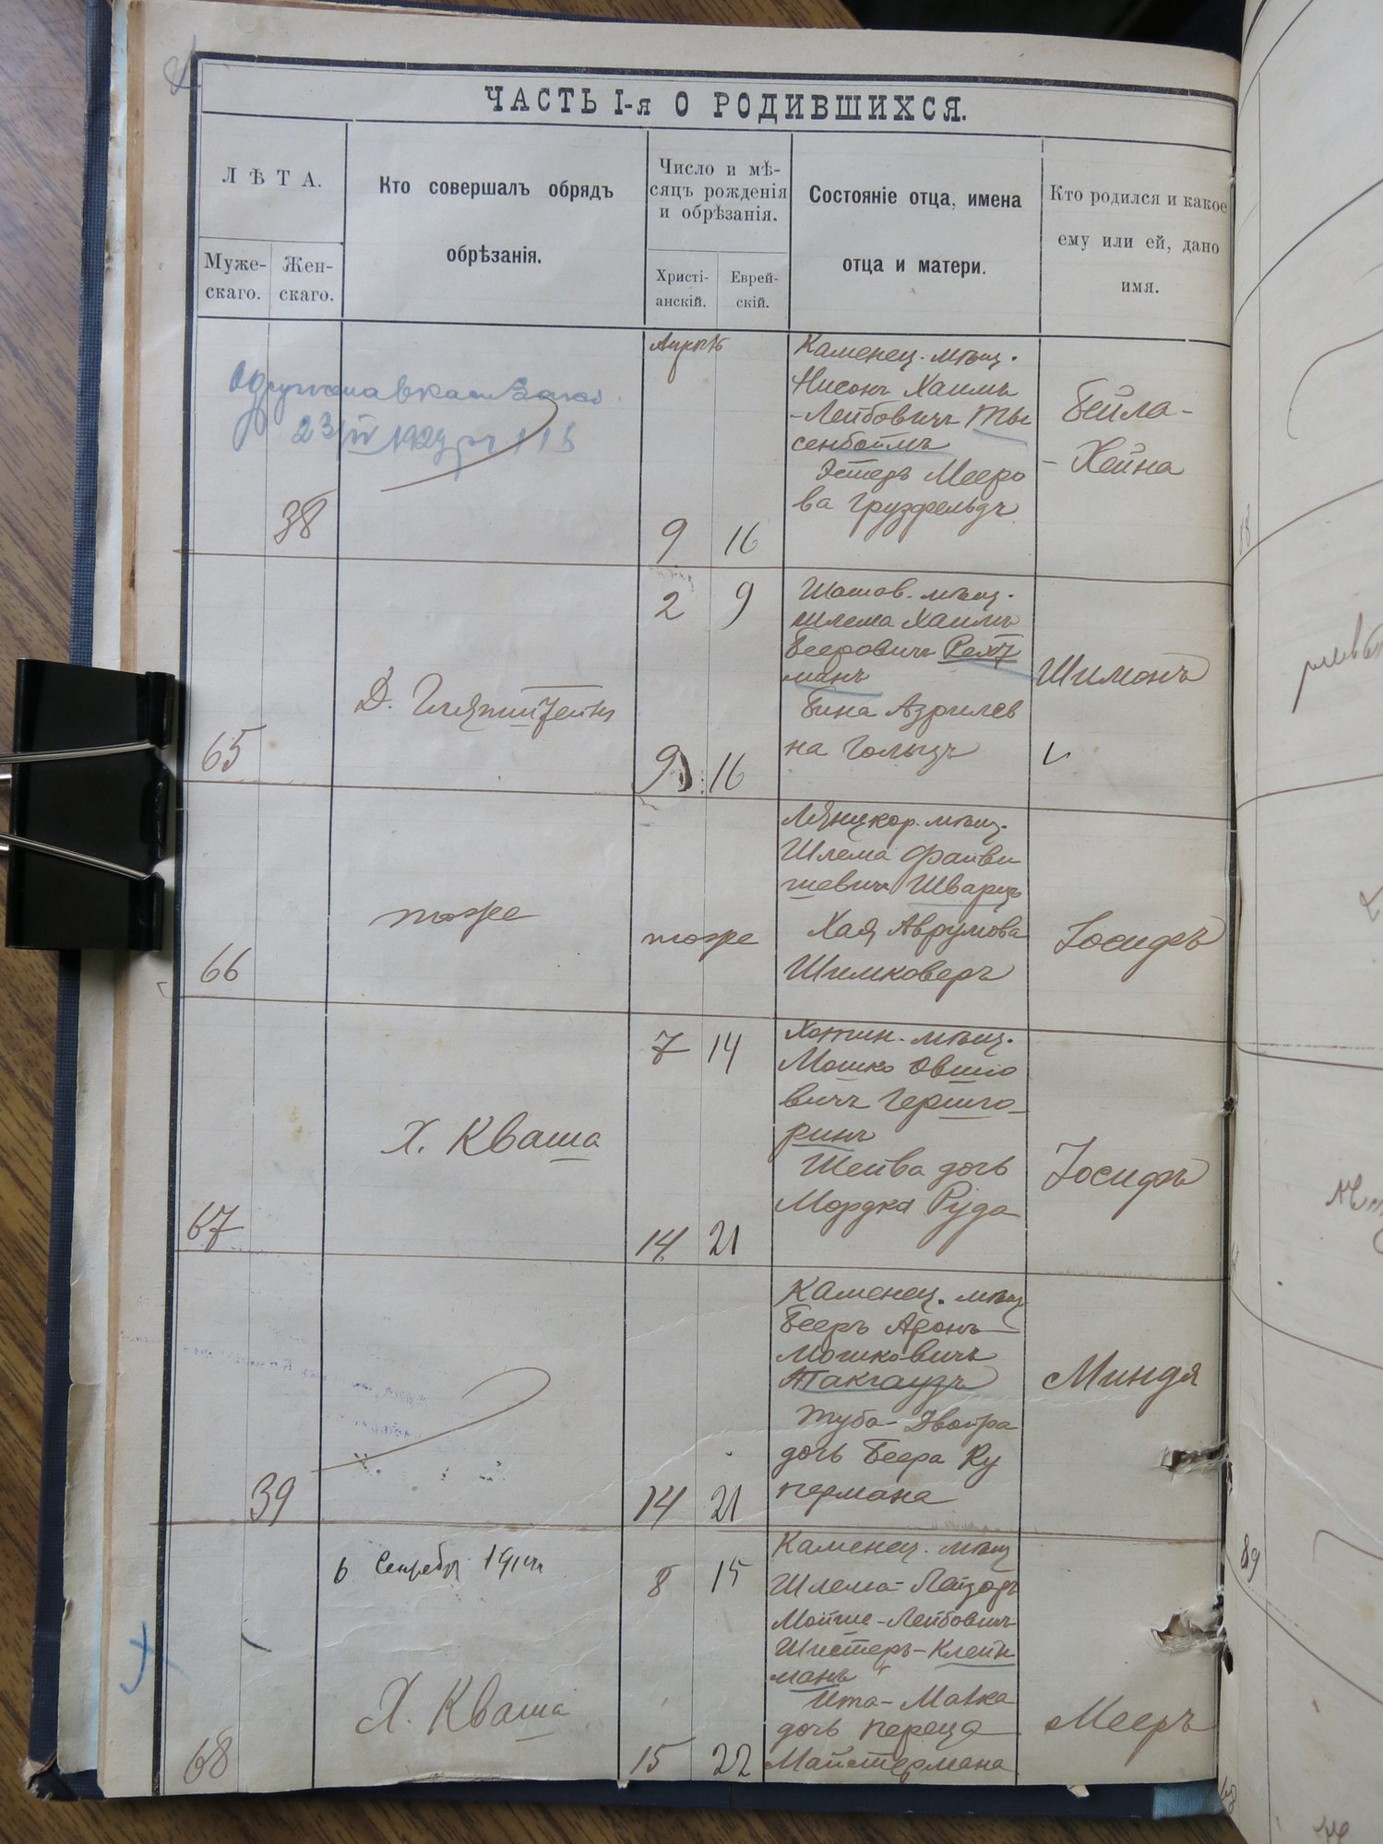 ЧАСТЬ I-я О РОДИВШИХСЯ.
ЛѢТА.
Муже-
скаго.
Жен-
скаго.
Кто совершалъ обрядъ
обрѣзанія.
Число и мѣ-
сяцъ рожденія
и обрѣзанія.
Христі-
анскій.
Еврей-
скій.
Состояніе отца, имена
отца и матери.
Кто родился и какое
ему или ей, дано
имя.
38
23/IV
115
9 16
Каменец. мѣщ.
Нисонъ Хаимъ
-Лейбовичъ
сенбоймъ
Эстеръ Мееро
ва
Бейла-
- Хейна
65
Д.
2 9
9 16
мѣщ.
Шлема Хаимъ
Бееровичъ
манъ
Бина Азрилев
на
Шимонъ
66
тоже
тоже
мѣщ.
Шлема Файви
шевичъ Шварцъ
Хая Аврумова
Шимковеръ
Іосифъ
67
Х. Кваша
7 14
14 21
Хотин. мѣщ.
Мошко Овшіо
вичъ Гершго-
ринъ
Шейва дочь
Мордка Руда
Іосифъ
39
14 21
Каменец. мѣщ
Бееръ Аронъ-
Мошковичъ
Такгаузъ
Туба-Двойра
дочь Беера Ку
пермана
Миндя
68
6
Х. Кваша
8 15
15 22
Каменец. мѣщ
Шлема-
Мойше-Лейбовичъ
Шистеръ-Клейн
манъ
Ита-Малка
дочь Переца
Майстермана
Мееръ